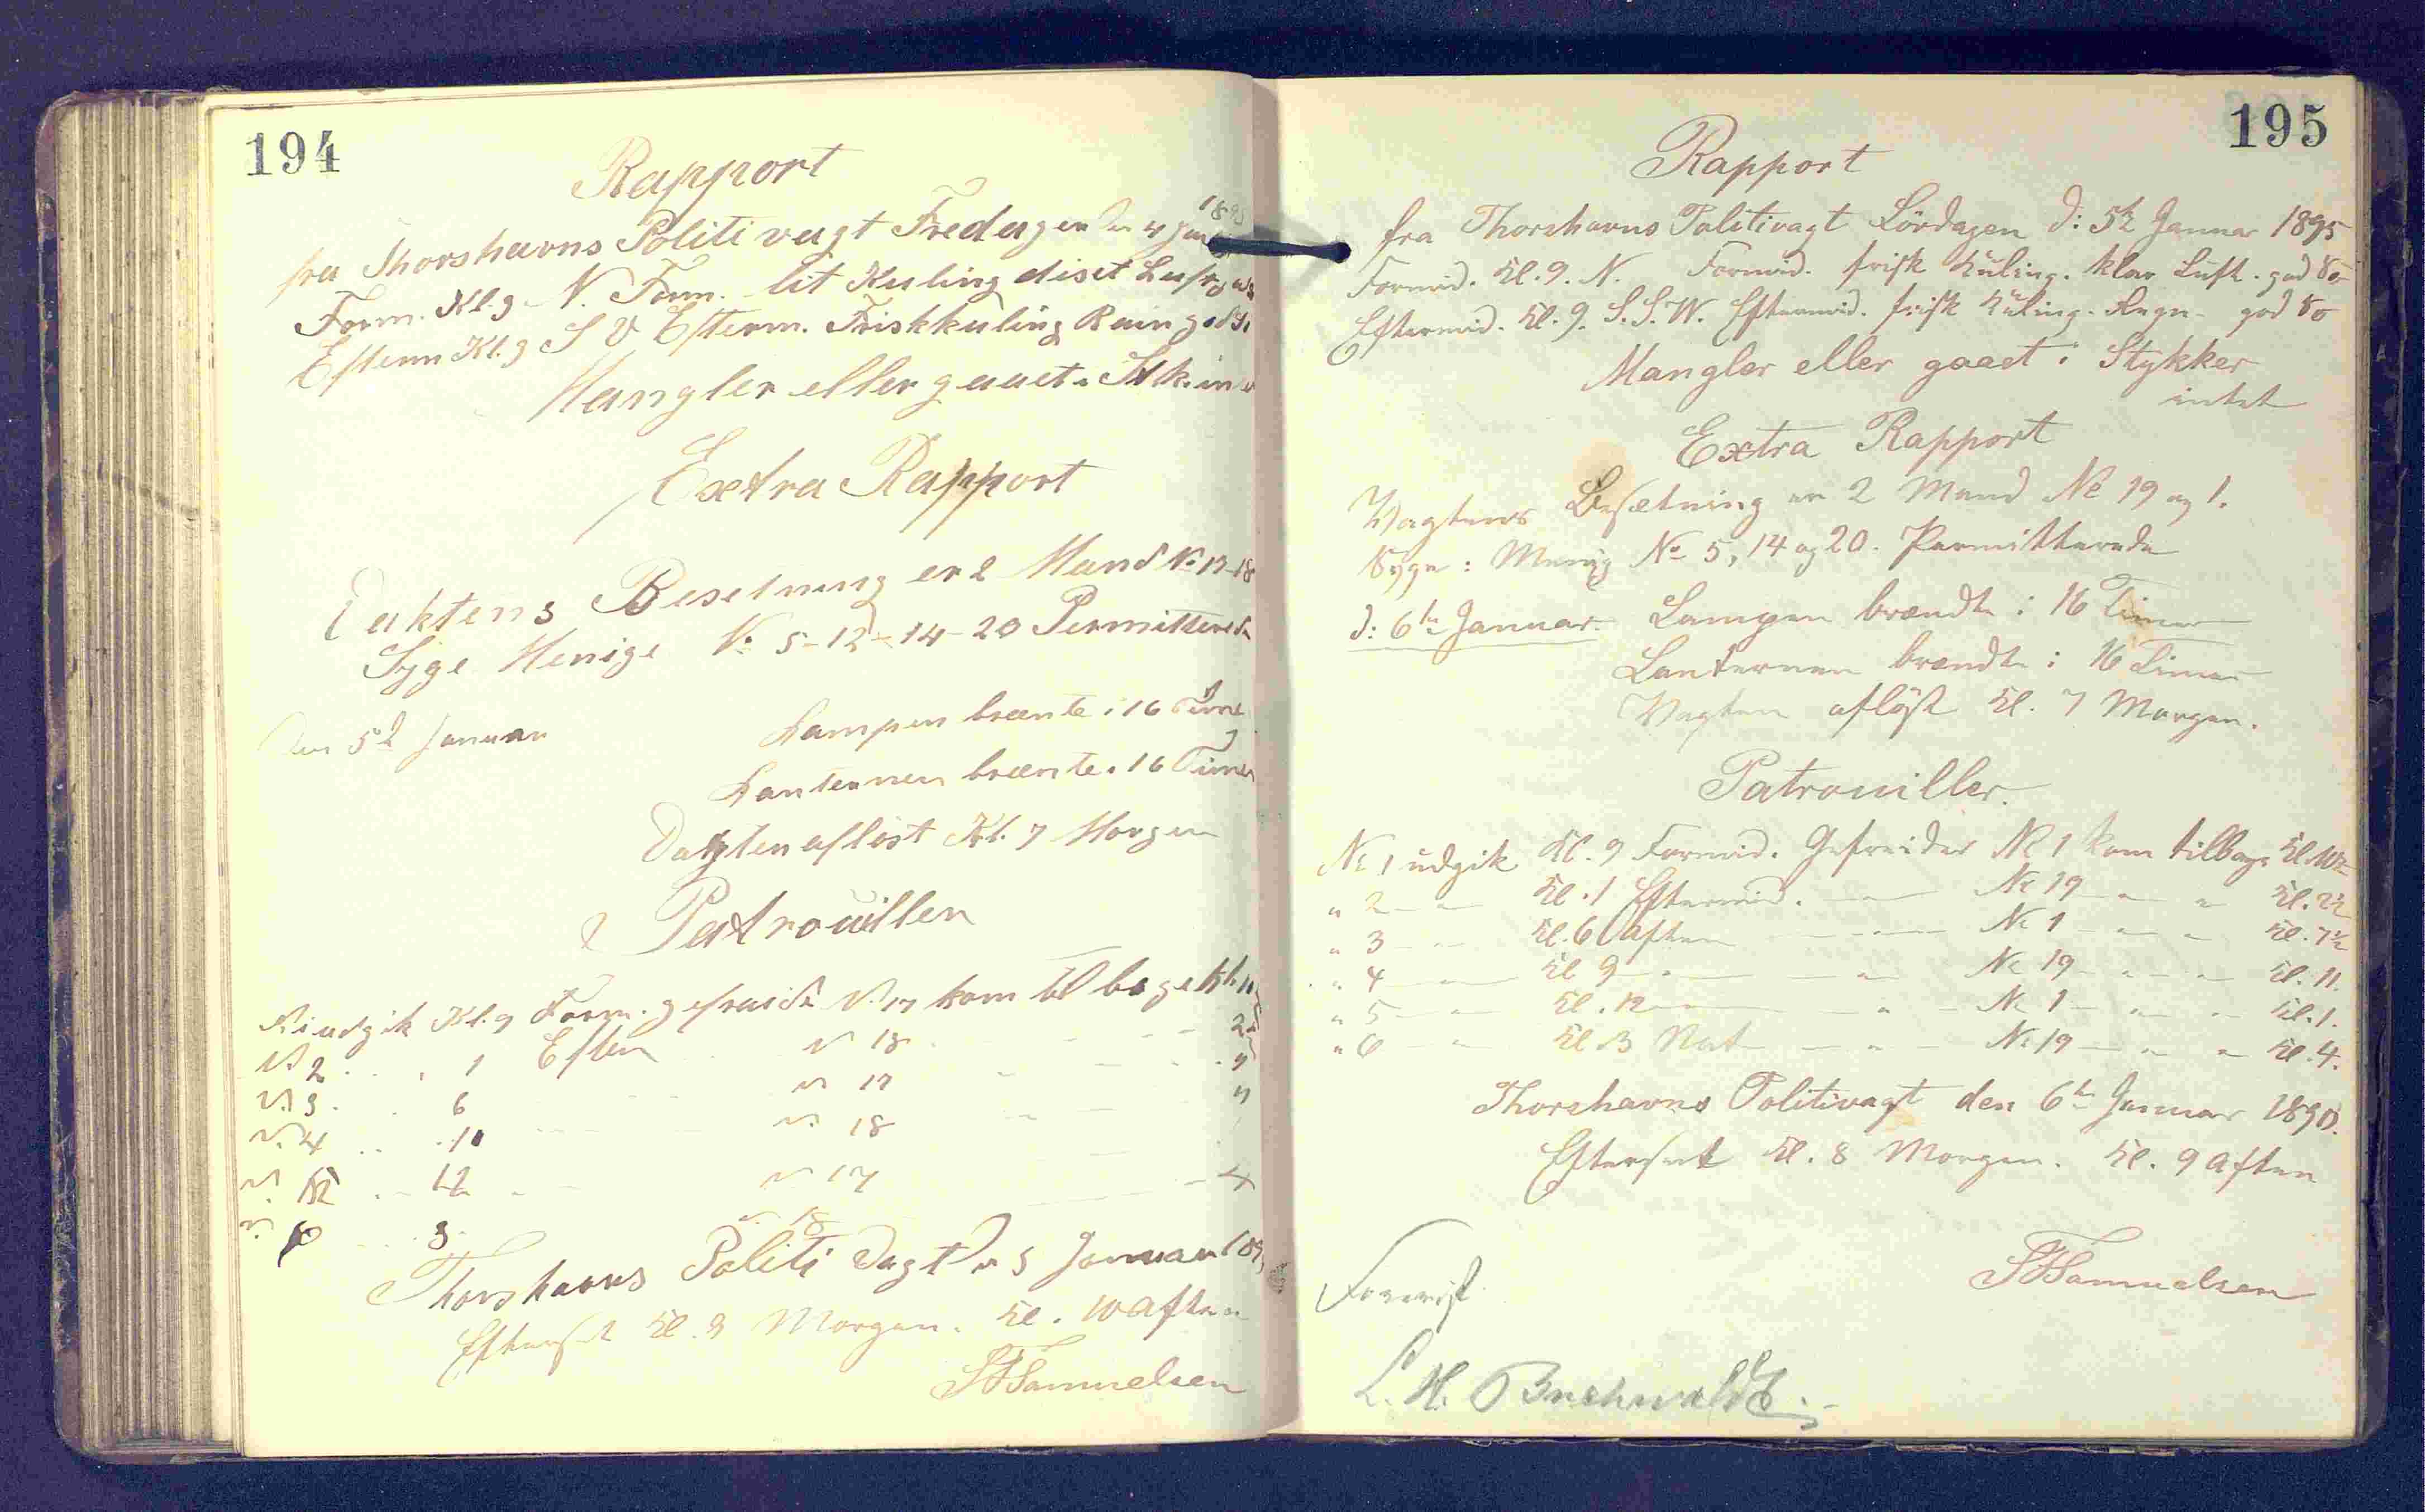 194
Rapport
fra Thorshavns Politivagt Fredagen den 4 Jan 1895
Form. Kl. 9 N. Form. lit Kuling diset Luft
Efterm Kl. 9 S V Efterm. Friskkuling Rain god
Mangler eller gaaet i Stk. in
Extra Rapport
Vaktens Besetning er 2 Mand No 17-18
Syge Menige No 5-12-14-20 Permitterede
Den 5d Januar Lampen brænte i 16 Time
Lanternen brænte i 16 Timer
Vagten afløst Kl. 7 Morgen
Patrouillen
N 1 udgik Kl. 9 Form. gefraide N. 17 kom tilbage Kl. 11
N. 2 1 Eften N 18 2½
N. 3 6 N 17
N. 4 10 N. 18
N. 5 12 N 17
N. 6 3 N. 18 4
Thorshavns Politi Vagt d. 5 Januar 189
Efterset Kl. 8 Morgen. Kl. 10 Aften
SFSamuelsen
195
Rapport
fra Thorshavns Politivagt Lördagen d: 5te Januar 1895
Formid. Kl. 9. N. Formid. frisk Kuling. klar Luft. god So
Eftermid. Kl. 9. S.S.W. Eftermid. frisk Kuling. Regn - god So
Mangler eller gaaet i Stykker
intet
Extra Rapport
Vagtens Besætning er 2 Mand No 19 og 1.
Syge: Menig No 5, 14 og 20. Permitterede
d: 6te Januar. Lampen brændte i 16 Timer
Lanternen brændte i 16 Timer
Vagten afløst Kl. 7 Morgen.
Patrouiller.
No 1 udgik Kl. 9 Formid. Gefreider No 1 kom tilbage Kl. 10½
" 2 — " Kl. 1 Eftermid. — No 19 — " " Kl. 2½
" 3 — " Kl. 6 Aften — No 1 — " " Kl. 7½
" 4 — Kl 9 — " — " No 19 — " — " Kl. 11.
" 5 — " Kl. 12 — " — " No 1 — " " Kl. 1.
" 6 — " Kl. 3 Nat — " — No 19 — " " Kl. 4.
Thorshavns Politivagt den 6te Januar 1895.
Efterset Kl. 8 Morgen. Kl. 9 Aften
SFSamuelsen
Forevist
L. H. Buchwaldt.